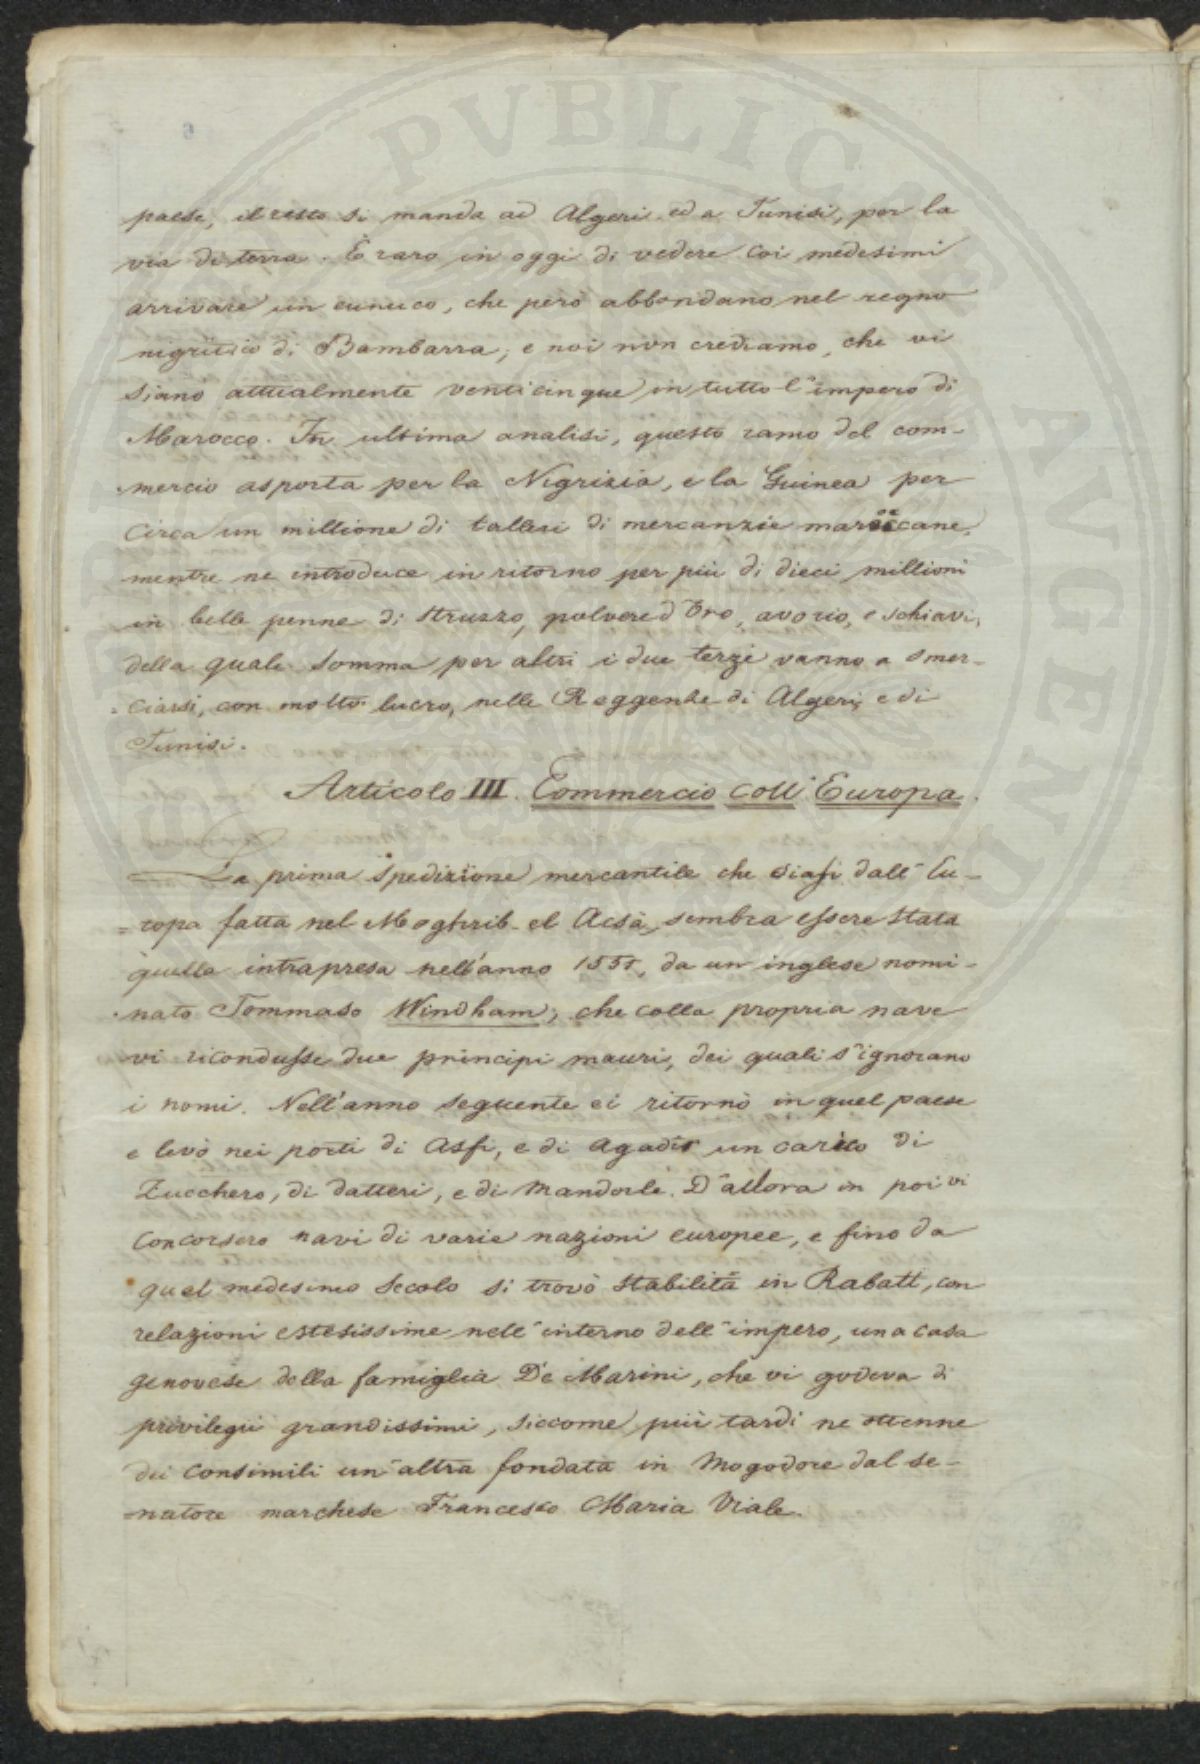 paese, il resto si manda ad Algeri ed a Tunisi, per la
via di terra. È raro in oggi di vedere coi medesimi
arrivare un eunuco, che però abbondano nel regno
nigritico di Bambarra, e noi non crediamo, che vi
siano attualmente venticinque in tutto l'impero di
Marocco. In ultima analisi, questo ramo del com-
-mercio asporta per la Nigrizia, e la Guinea per
circa un millione di talleri di mercanzie maroccane,
mentre ne introduce in ritorno per più di dieci millioni
in belle penne di struzzo, polvere d'oro, avorio, e schiavi,
della quale somma per altri i due terzi vanno a smer-
=ciarsi, con molto lucro, nelle Reggenze di Algeri, e di
Tunisi.
Articolo III. Commercio coll' Europa.
La prima spedizione mercantile che siasi dall' Eu-
=ropa fatta nel Moghrib-el Acsà, sembra essere stata
quella intrapresa nell'anno 1551, da un inglese nomi-
-nato Tommaso Windham, che colla propria nave
vi ricondusse due principi mauri, dei quali s'ignorano
i nomi. Nell'anno seguente ei ritornò in quel paese
e levò nei porti di Asfi, e di Agadir un carico di
Zucchero, di datteri, e di mandorle. D'allora in poi vi
concorsero navi di varie nazioni europee, e fino da
quel medesimo secolo si trovò stabilità in Rabatt, con
relazioni estesissime nell'interno dell'impero, una casa
genovese della famiglia De Marini, che vi godeva di
privilegii grandissimi, siccome più tardi ne ottenne
dei consimili un'altra fondata in Mogodore dal se-
=natore marchese Francesco Maria Viale.